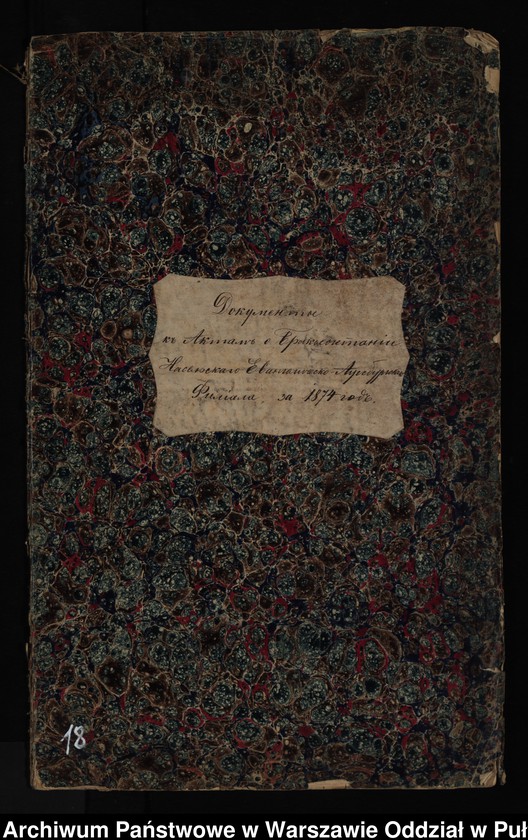 Документы
къ Актамъ о Бракосочетаніи
Насельскаго Евангелическо Аугсбургскаго
Филіала за 1874 годъ.
18
Archiwum Państwowe w Warszawie Oddział w Puł